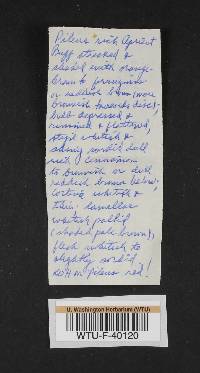 Pileus rich Apricot
Buff streaked &
shaded with orange-
brown to ferruginous
or reddish brown (more
brownish towards disc)
but depressed &
rimmed & flattened,
stipe whitish &
shiny sordid dull
rich cinnamon
to brownish or dull
reddish brown below
cortina whitish &
thin: lamellae
whitish pallid
(shaded pale brown),
flesh whitish to
slightly sordid,
KOH on pileus red!
U. Washington Herbarium (WTU)
WTU-F-40120